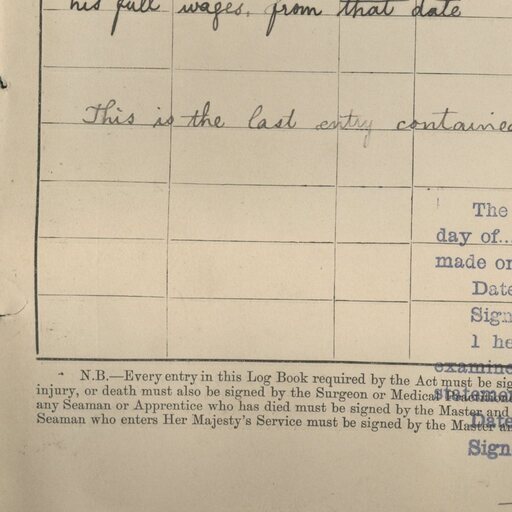 his full wages, from that date
This is the last entry contained
The
day of..
made on
Date
Sign
1 he
examine
statemen
Date
Sign
N.B.—Every entry in this Log Book required by the Act must be sig
injury, or death must also be signed by the Surgeon or Medical Practition
any Seaman or Apprentice who has died must be signed by the Master and
Seaman who enters Her Majesty's Service must be signed by the Master an